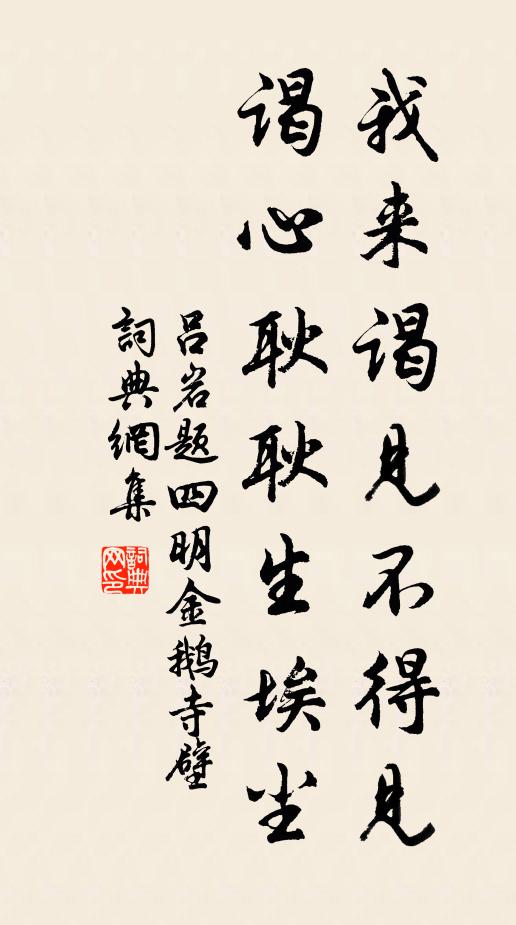 我来谒见不得见
谒心耿耿生埃尘
吕岩题四明金鹅寺壁
詞典網集
詞典
网印